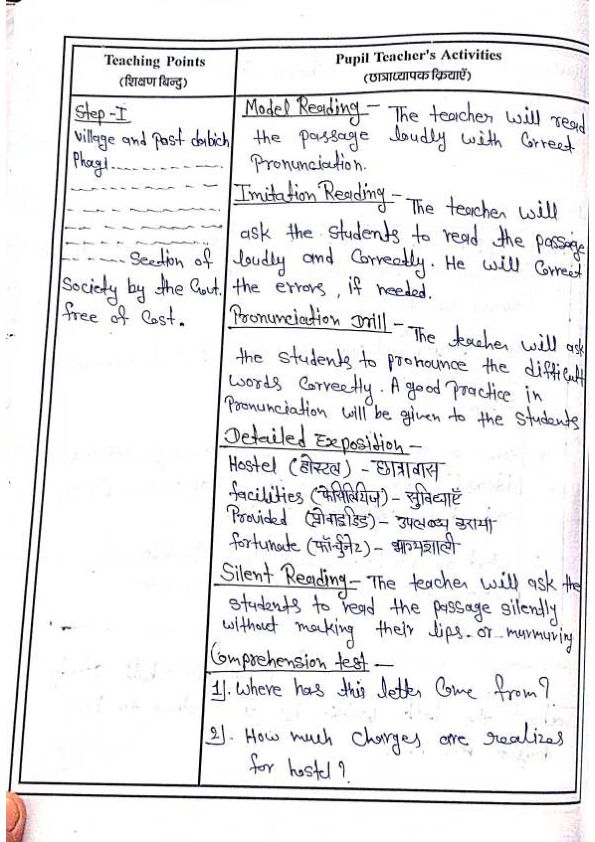 Teaching Points
(शिक्षण बिन्दु)
Step-I
village and Post dabich
Phagi
Section of
Society by the Govt.
free of Cost.
Pupil Teacher's Activities
(छात्राध्यापक क्रियाएँ)
Model Reading - The teacher will read
the passage loudly with Correct
Pronunciation.
Imitation Reading - The teacher will
ask the students to read the passage
loudly and Correctly. He will Correct
the errors, if needed.
Pronunciation Drill - The teacher will ask
the students to pronounce the difficult
words Correctly. A good Practice in
Pronunciation will be given to the students
Detailed Exposition -
Hostel (होस्टल) - छात्रावास
facilities - सुविधाएँ
Provided (प्रोवाइडिड) - उपलब्ध कराया
fortunate (फॉर्चुनेट) - भाग्यशाली
Silent Reading - The teacher will ask the
students to read the passage silently
without making their lips or murmuring
Comprehension test -
1). Where has this letter Come from?
2). How much charges are realizes
for hostel?